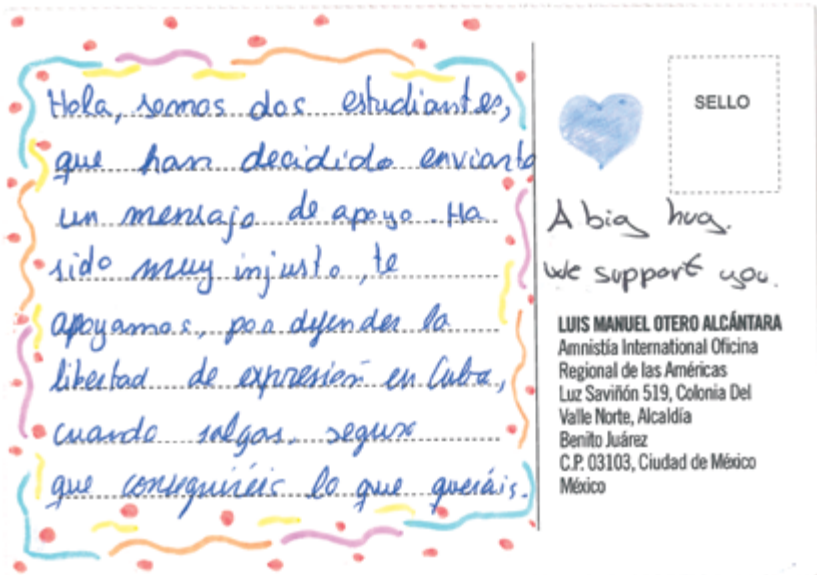 Hola, somos dos estudiantes,
que han decidido enviarte
un mensaje de apoyo. Ha
sido muy injusto, te
apoyamos, por defender la
libertad de expresión en Cuba,
cuando salgas, seguro
que conseguiréis lo que queráis.
SELLO
A big hug.
We support you.
LUIS MANUEL OTERO ALCÁNTARA
Amnistía International Oficina
Regional de las Américas
Luz Saviñón 519, Colonia Del
Valle Norte, Alcaldía
Benito Juárez
C.P. 03103, Ciudad de México
México